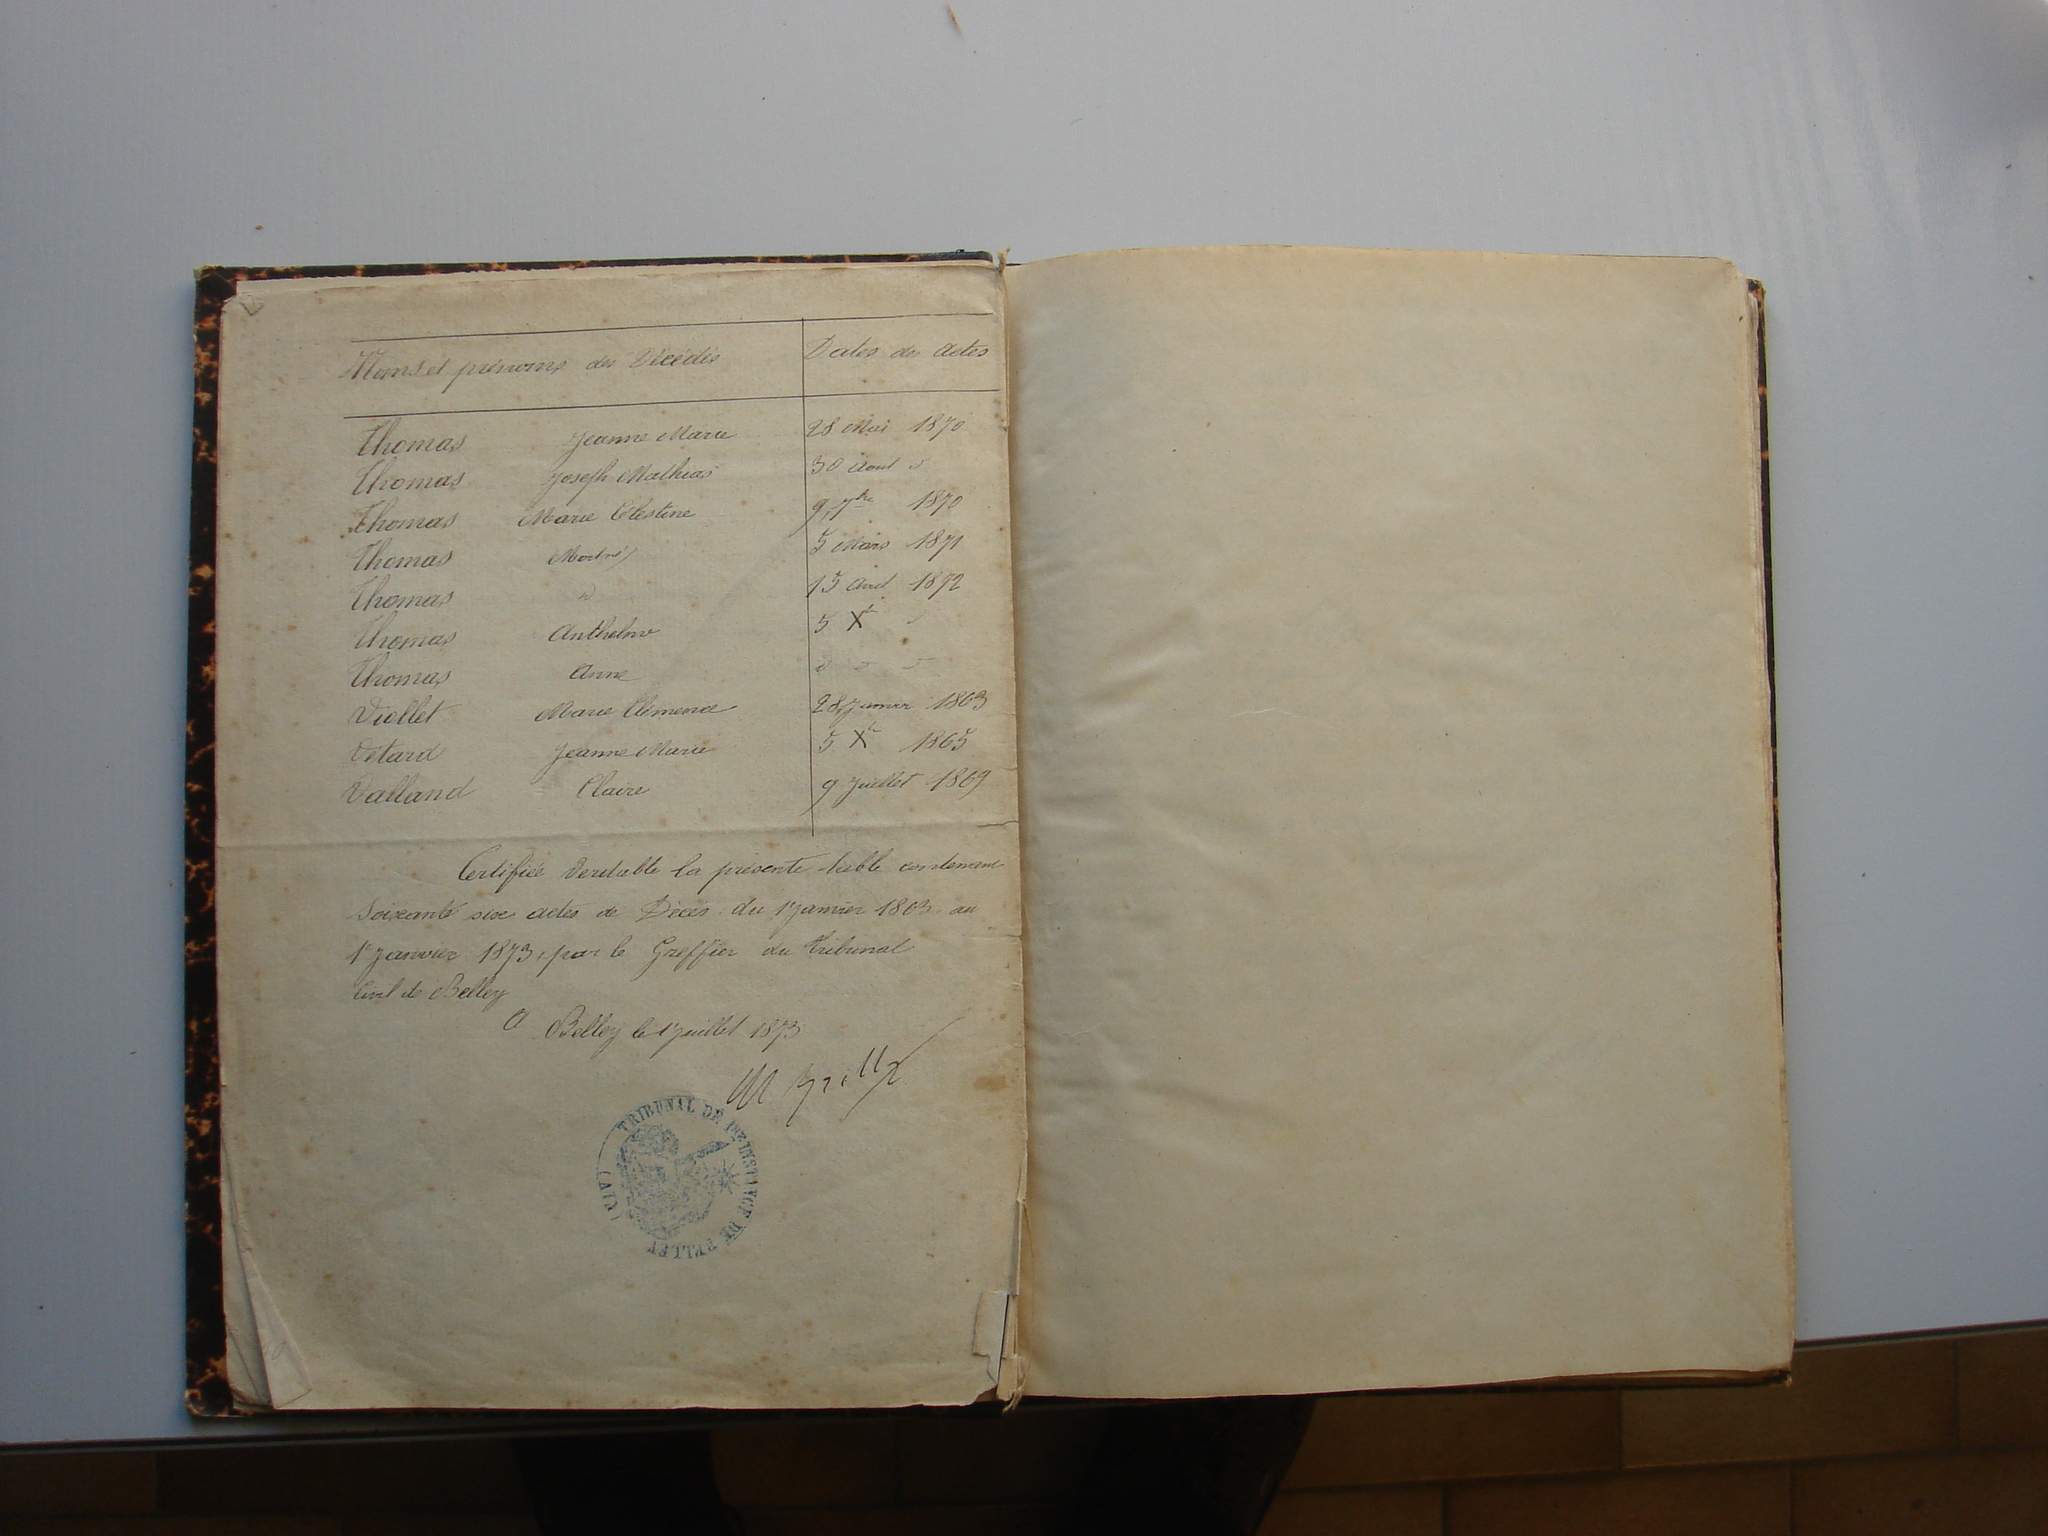 Noms et prénoms des Décédés Dates des actes
Thomas Jeanne Marie 28 Mai 1870
Thomas Joseph Mathias 30 Aout d°
Thomas Marie Célestine 9 7bre 1870
Thomas Mortné 5 Mars 1871
Thomas d° 15 Avril 1872
Thomas Anthelme 5 Xe d°
Thomas Anne d° d° d°
Viollet Marie Clémence 28 Janvier 1863
Vétard Jeanne Marie 5 Xe 1865
Valland Claire 9 Juillet 1869
Certifiée Veritable la présente table contenant
Soixante six actes de Décès du 1er Janvier 1863 au
1er Janvier 1873, par le Greffier du tribunal
Civil de Belley
A Belley le 1er Juillet 1873
TRIBUNAL DE 1RE INSTANCE DE BELLEY (AIN)